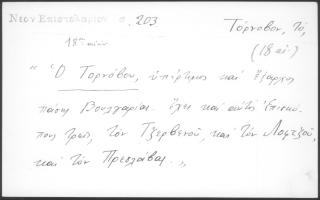 Νεον Επιστολαριον σ. 203
Τόρνοβον, τό,
18ου αιών
(18 αἰ.)
"Ὁ Τορνόβου, ὑπέρτιμος καὶ ἔξαρχος
πάσης Βουλγαρίας. ἔχει καὶ αὐτὸς ἐπισκό-
πους τρεῖς, τὸν Τζερβενοῦ, καὶ τὸν Λοφτζοῦ,
καὶ τὸν Πρεσλάβας.„